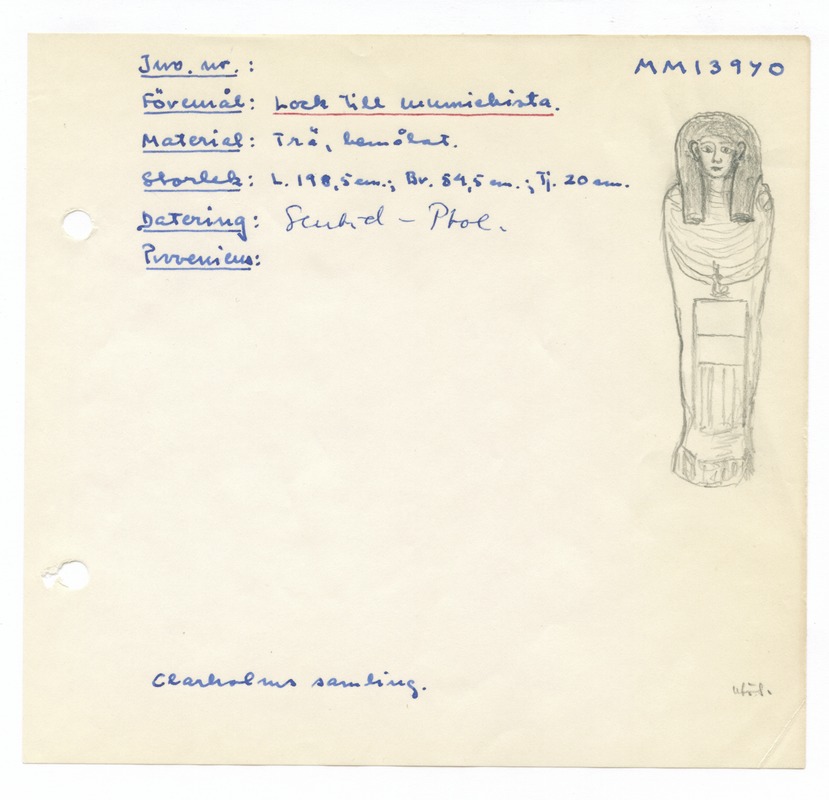 Inv. nr. : MM13970
Föremål: Lock till mumiekista.
Material: Trä, bemålat.
Storlek: L. 198,5 cm.; Br. 54,5 cm.; Tj. 20 cm.
Datering: Sentid – Ptol.
Proveniens:
Clasholms samling.